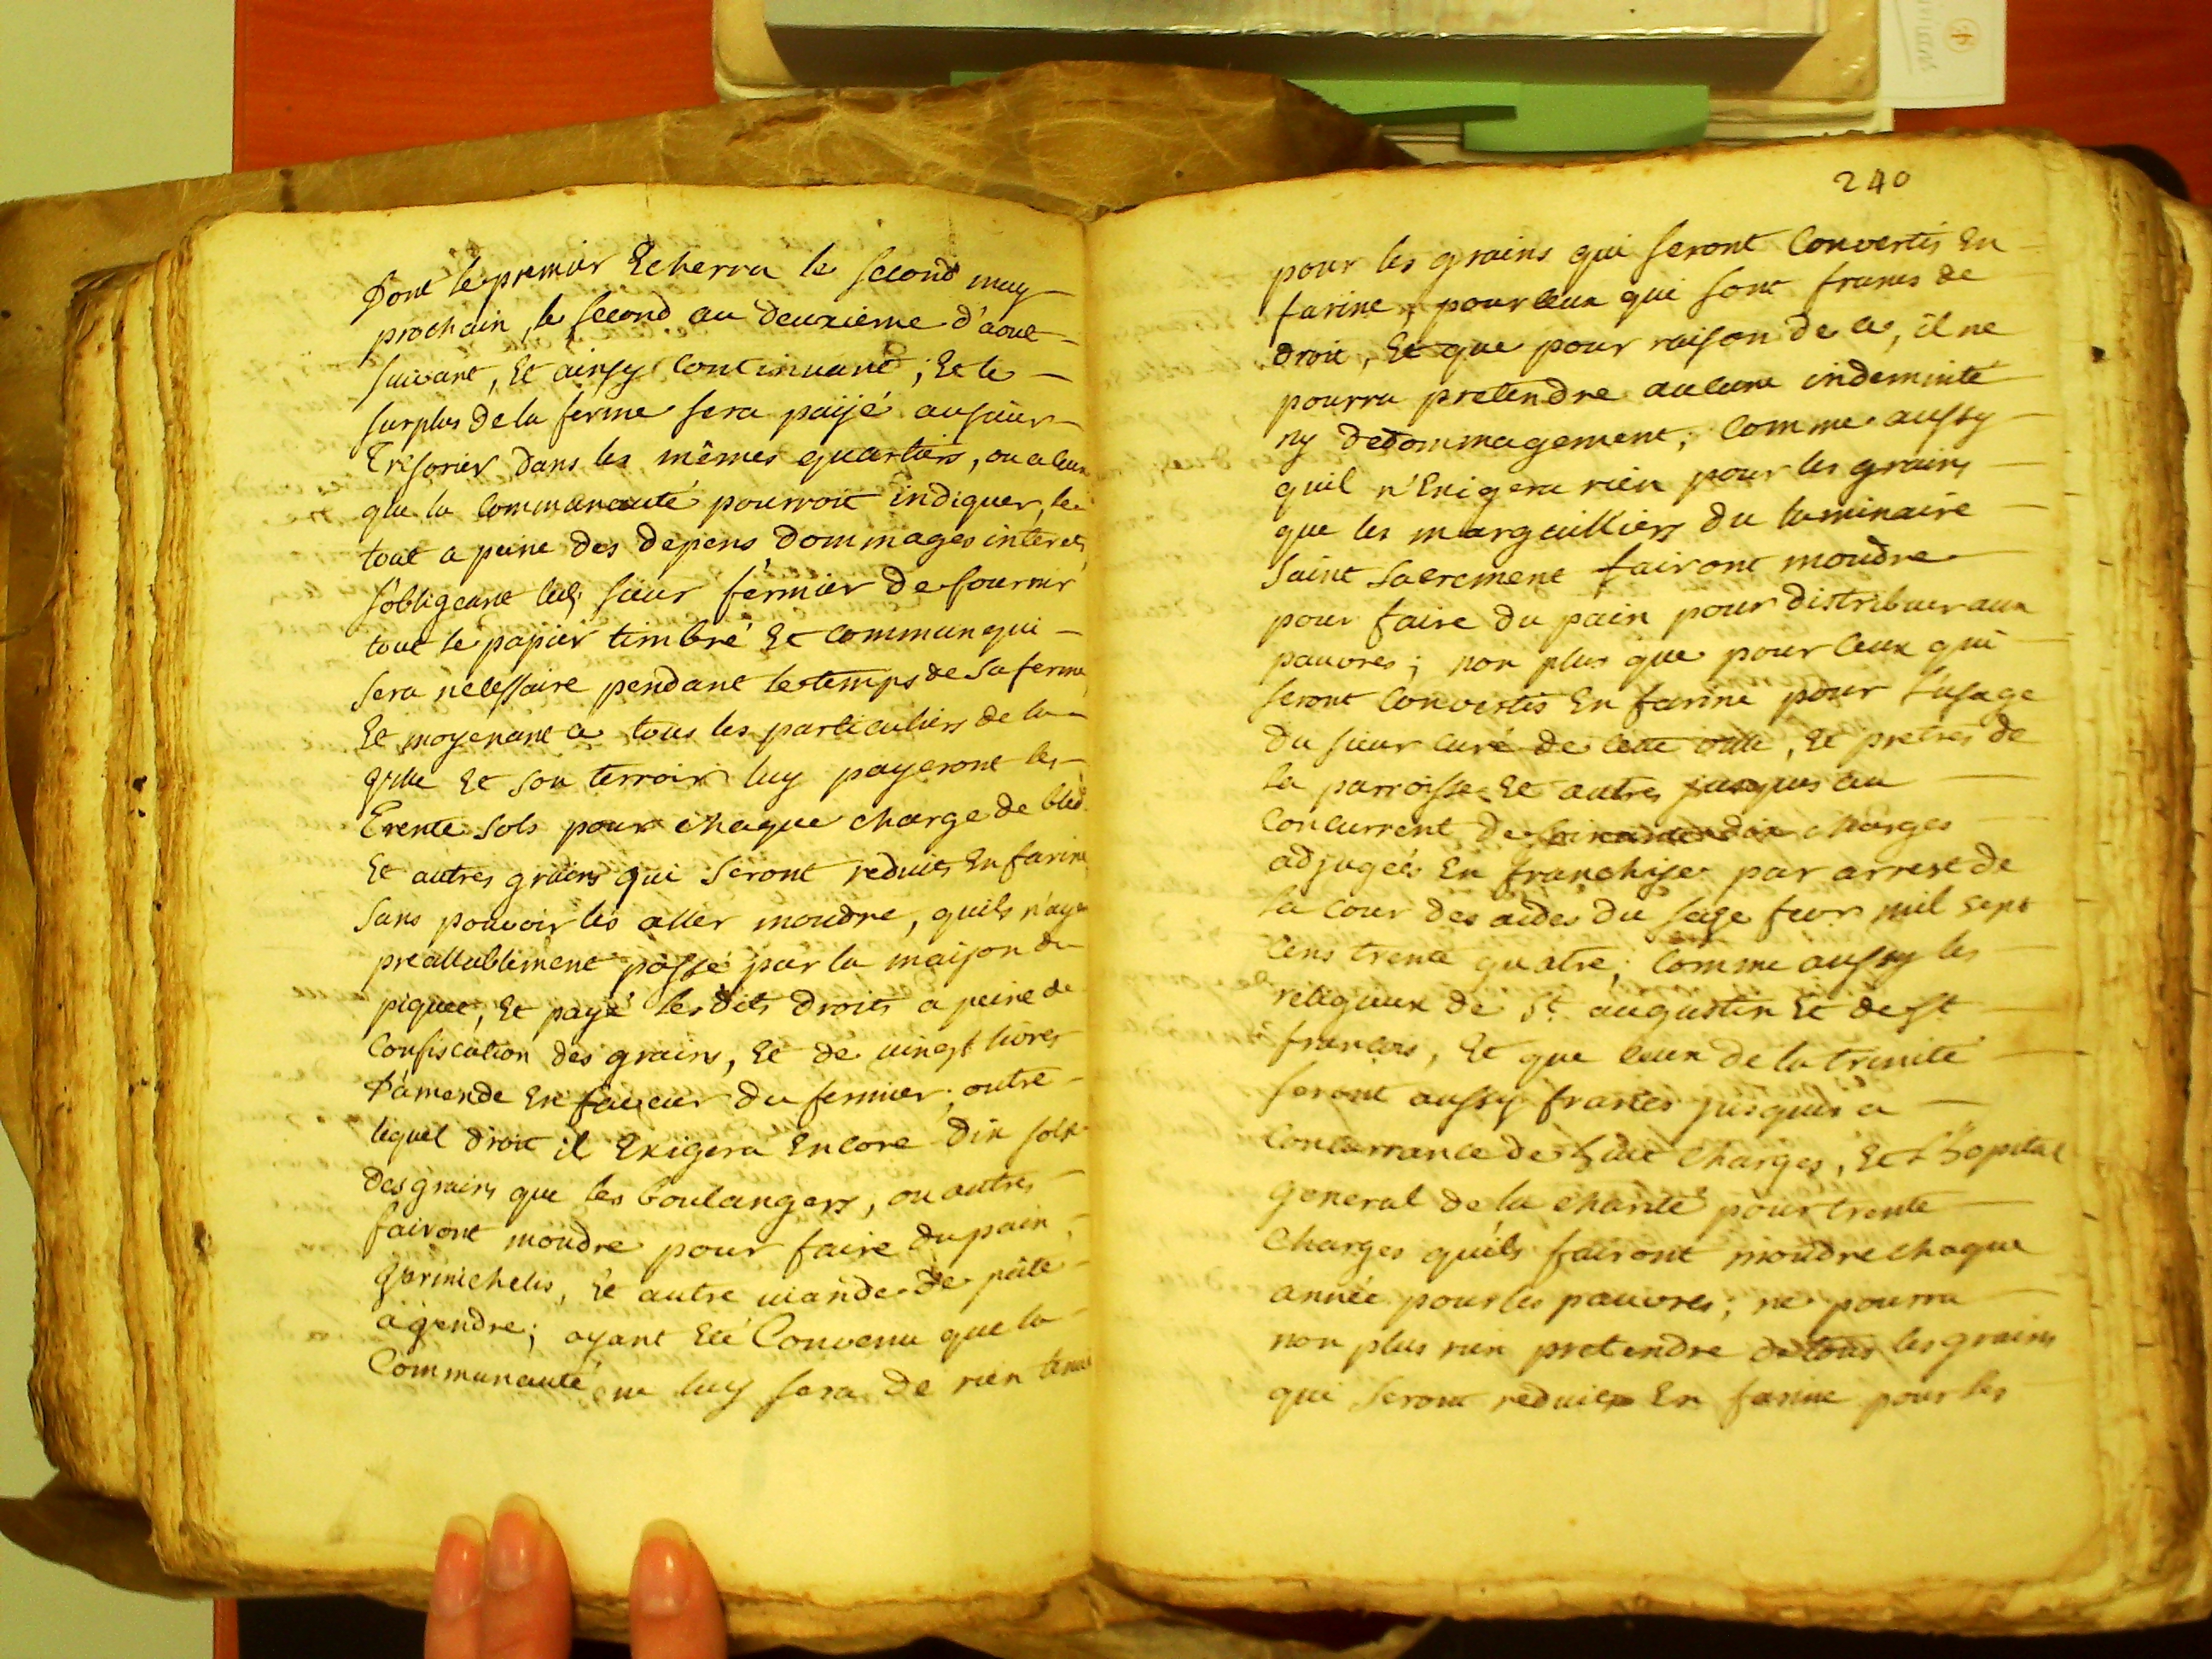 Dont le premier Echerra le second may
prochain, le second au deuxieme d'aout
suivant, Et ainsy continuant; Et le
surplus de la ferme sera paijé au sieur
Tresorier dans les mêmes quartiers, ou a ceux
que la Communauté pourroit indiquer, le
tout a peine des depens dommages interets
s'obligeant led. sieur fermier de fournir
tout le papier timbré Et commun qui
sera necessaire pendant le temps de sa ferme
Et moyenant ce tous les particuliers de la
Ville Et son terroir luy payeront les
Trente sols pour chaque charge de bled
Et autres grains qui seront reduits En farine
sans pouvoir les aller moudre, quils n'ayent
preallablement passé par la maison du
piquet, Et payé lesdits droits a peine de
Confiscation des grains, Et de vingt livres
D'amende En faveur du fermier; outre
lequel droit il Exigera Encore dix sols
des grains que les boulangers, ou autres
fairont moudre pour faire du pain,
Vermichelis, Et autre viande de pâte
a vendre; ayant Eté Convenu que la
Communauté ne luy sera de rien tenue
240
pour les grains qui seront Convertis En
farine, pour ceux qui sont francs de
droit, Et que pour raison de ce, il ne
pourra pretendre aucune indemnité
ny dedommagement; Comme aussy
quil n'Exigera rien pour les grains
que les marguilliers du luminaire
Saint Sacrement fairont moudre
pour faire du pain pour distribuer aux
pauvres; non plus que pour ceux qui
seront Convertis En farine pour L'usage
du sieur curé de cette ville, Et pretres de
la parroisse Et autres jusques au
Concurrent de charges
adjugées En franchise par arrest de
la Cour des aides du seize fevr mil sept
cens trente quatre; Comme aussy les
religieux de St. augustin Et de St
françois, Et que ceux de la trinité
seront aussy francs jusques a
Concurrance de huit Charges, Et L'hopital
general de la charité pour trente
Charges quils fairont moudre chaque
année pour les pauvres; ne pourra
non plus rien pretendre de tous les grains
qui seront reduits En farine pour les